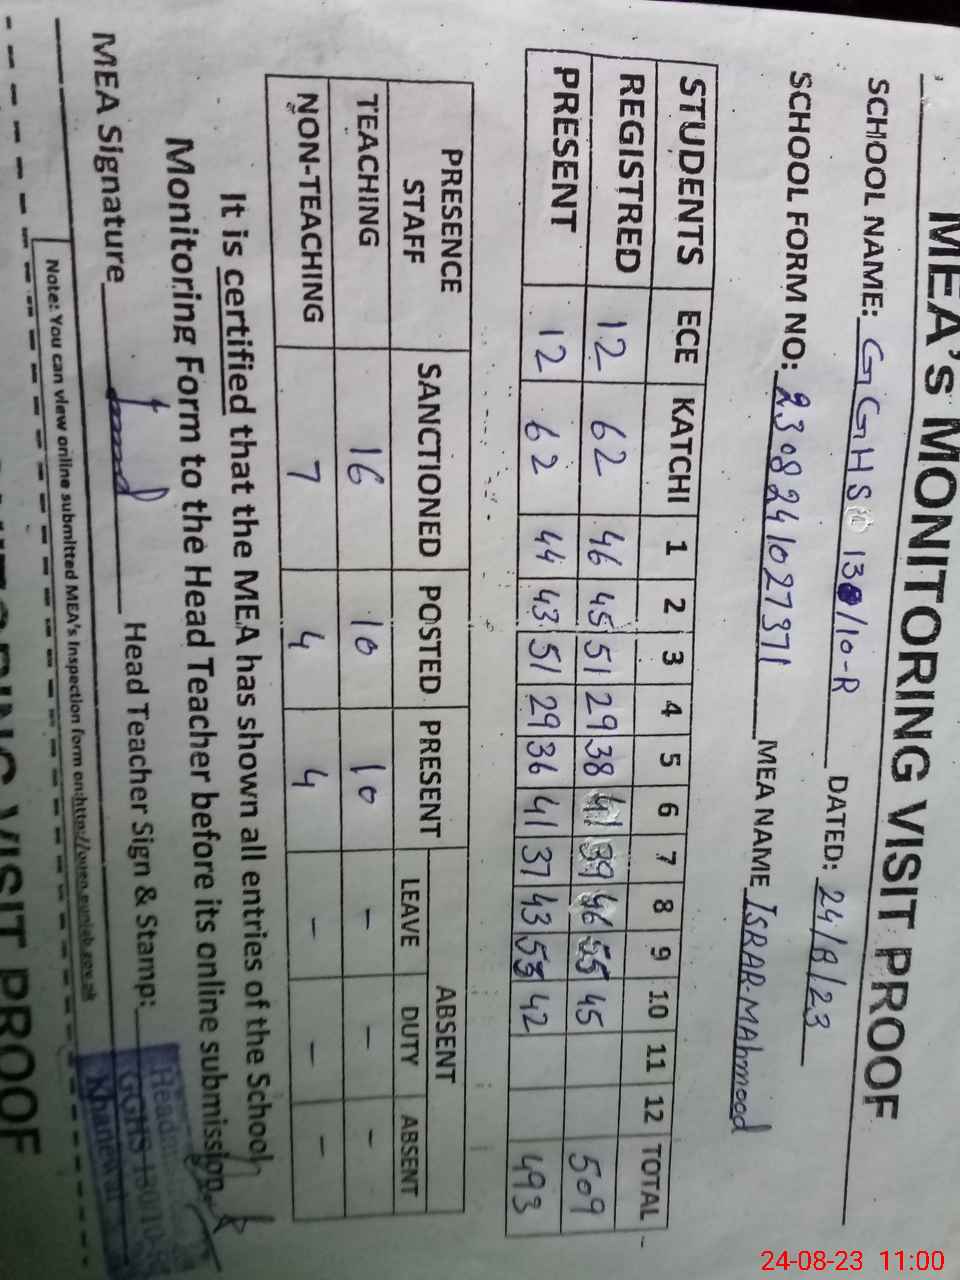 MEA's MONITORING VISIT PROOF
SCHOOL NAME: GGHS 130/10-R DATED: 24/8/23
SCHOOL FORM NO: 2308241027371 MEA NAME ISRAR-MAhmood
STUDENTS ECE KATCHI 1 2 3 4 5 6 7 8 9 10 11 12 TOTAL
REGISTRED 12 62 46 45 51 29 38 41 39 46 55 45 509
PRESENT 12 62 44 43 51 29 36 41 37 43 53 42 493
PRESENCE STAFF SANCTIONED POSTED PRESENT ABSENT
LEAVE DUTY ABSENT
TEACHING 16 10 10 - - -
NON-TEACHING 7 4 4 - - -
It is certified that the MEA has shown all entries of the School
Monitoring Form to the Head Teacher before its online submission.
MEA Signature Head Teacher Sign & Stamp:
GGHS 130/10-R
Khanewal
Note: You can view online submitted MEA's Inspection form on:http://open.punjab.gov.pk
VISIT PROOF
24-08-23 11:00